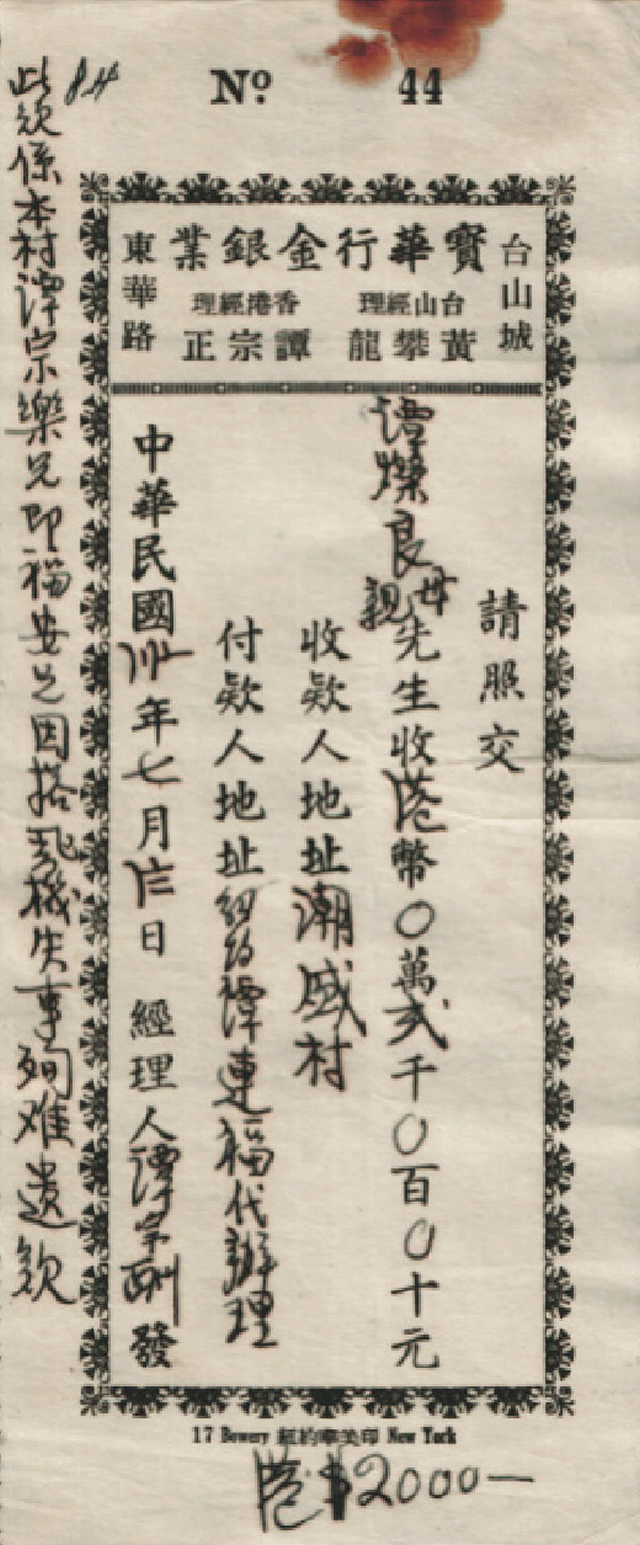 No 44
84
台山城
寳華行金銀業
台山經理
黃攀龍
香港經理
譚宗正
東華路
請照交
譚燦良母親先生收港幣〇萬弍千〇百〇十元
收欵人地址潮盛村
付欵人地址紐約譚連福代辦理
中華民國卅年七月日 經理人譚宗發
此欵係本村譚宗樂兄即福安兄因搭飛机失事殉难遺欵
17 Bowery 紐約華美印 New York
港$2000—